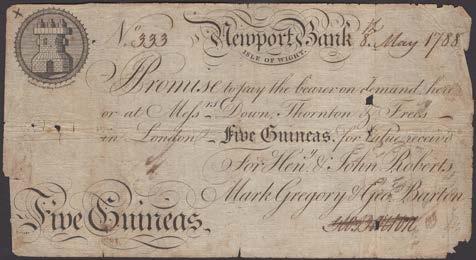 No. 333 Newport Bank 8th May 1788
ISLE OF WIGHT.
I Promise to pay the bearer on demand, here
or at Messrs Down, Thornton & Free's
in London Five Guineas, for value received
For Henry & John Roberts
Mark Gregory & Geo. Barton
Five Guineas.